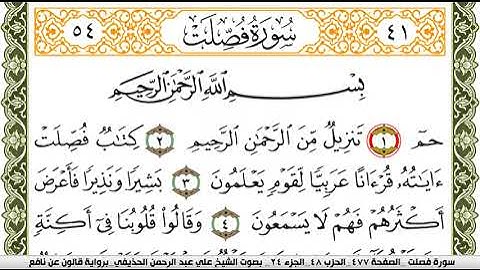 ٤١ سُورَةُ فُصِّلَتْ ٥٤
بِسْمِ اللَّهِ الرَّحْمَٰنِ الرَّحِيمِ
حمٓ ١ تَنزِيلٌ مِّنَ الرَّحْمَٰنِ الرَّحِيمِ ٢ كِتَابٌ فُصِّلَتْ
ءَايَاتُهُۥ قُرْءَانًا عَرَبِيًّا لِّقَوْمٍ يَعْلَمُونَ ٣ بَشِيرًا وَنَذِيرًا فَأَعْرَضَ
أَكْثَرُهُمْ فَهُمْ لَا يَسْمَعُونَ ٤ وَقَالُوا قُلُوبُنَا فِىٓ أَكِنَّةٍ
سورة فصلت _ الصفحة ٤٧٧ الحزب ٤٨ الجزء ٢٤ _ بصوت الشيخ علي عبد الرحمن الحذيفي برواية قالون عن نافع